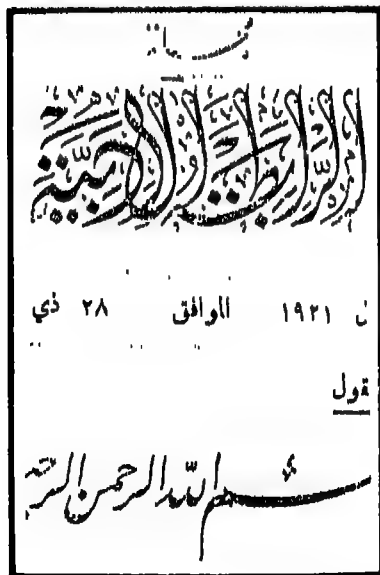 الرَّابطة الأدبيَّة
ن ١٩٢١ الموافق ٢٨ ذي
قول
بسم الله الرحمن الرحـ